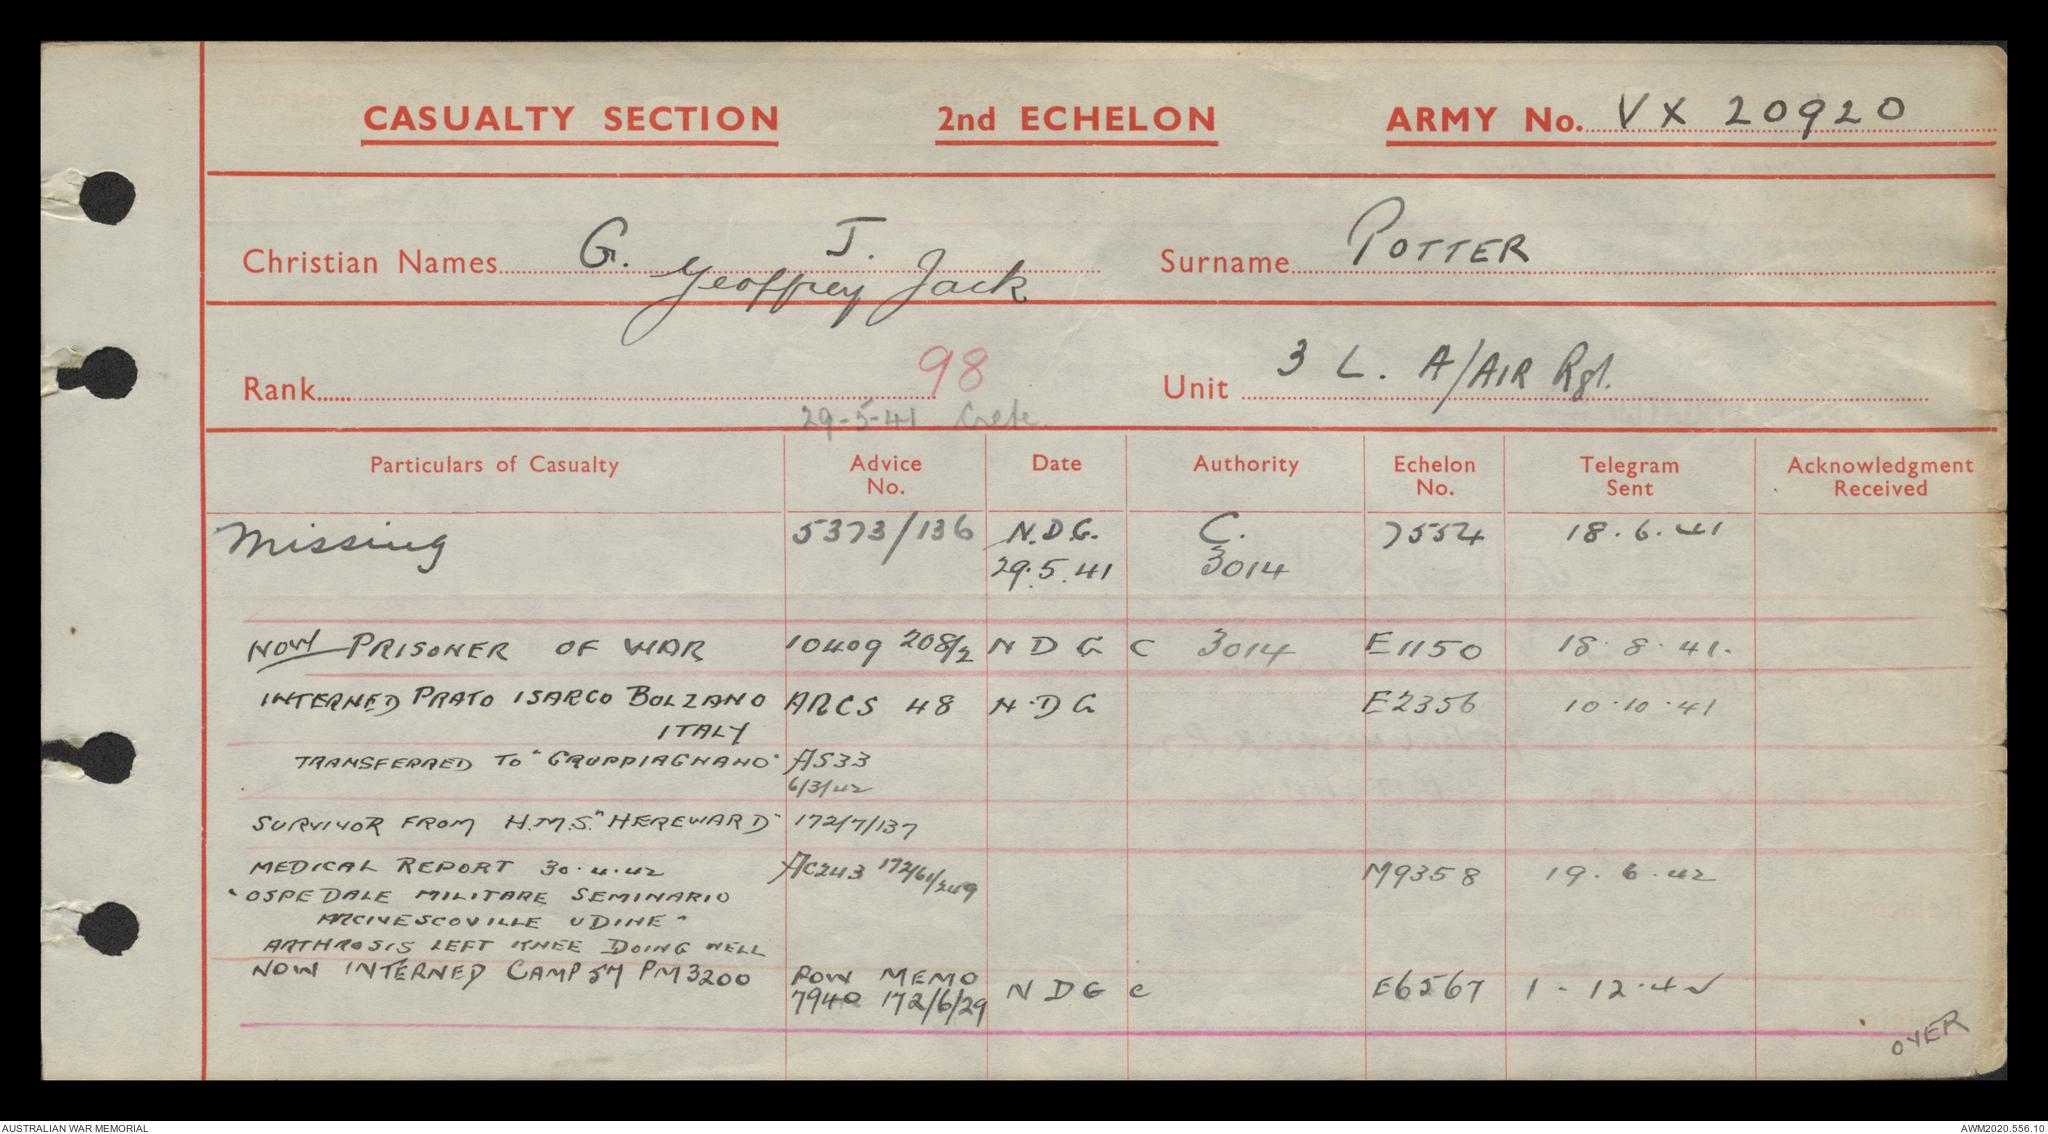 CASUALTY SECTION 2nd ECHELON ARMY No. VX 20920
Christian Names G. J. Surname POTTER
Geoffrey Jack
Rank 98 Unit 3 L. A/AIR Rgt.
29-5-41 Crete
Particulars of Casualty Advice No. Date Authority Echelon No. Telegram Sent Acknowledgment Received
Missing 5373/136 N.D.G. C. 7554 18.6.41
29.5.41 3014
NOW PRISONER OF WAR 10409 208/2 N D G C 3014 E1150 18.8.41.
INTERNED PRATO ISARCO BOLZANO ARCS 48 N.D G E2356 10.10.41
ITALY
TRANSFERRED TO "GRUPPIAGNANO" AS33
6/3/42
SURVIVOR FROM H.M.S. "HEREWARD" 172/7/137
MEDICAL REPORT 30.4.42 AC243 172/61/249 M9358 19.6.42
"OSPEDALE MILITARE SEMINARIO
ARCIVESCOVILLE UDINE"
ARTHROSIS LEFT KNEE DOING WELL
NOW INTERNED CAMP 57 PM3200 POW MEMO
7940 172/6/29 N D G C E6567 1-12.42
OVER
AUSTRALIAN WAR MEMORIAL AWM2020.556.10